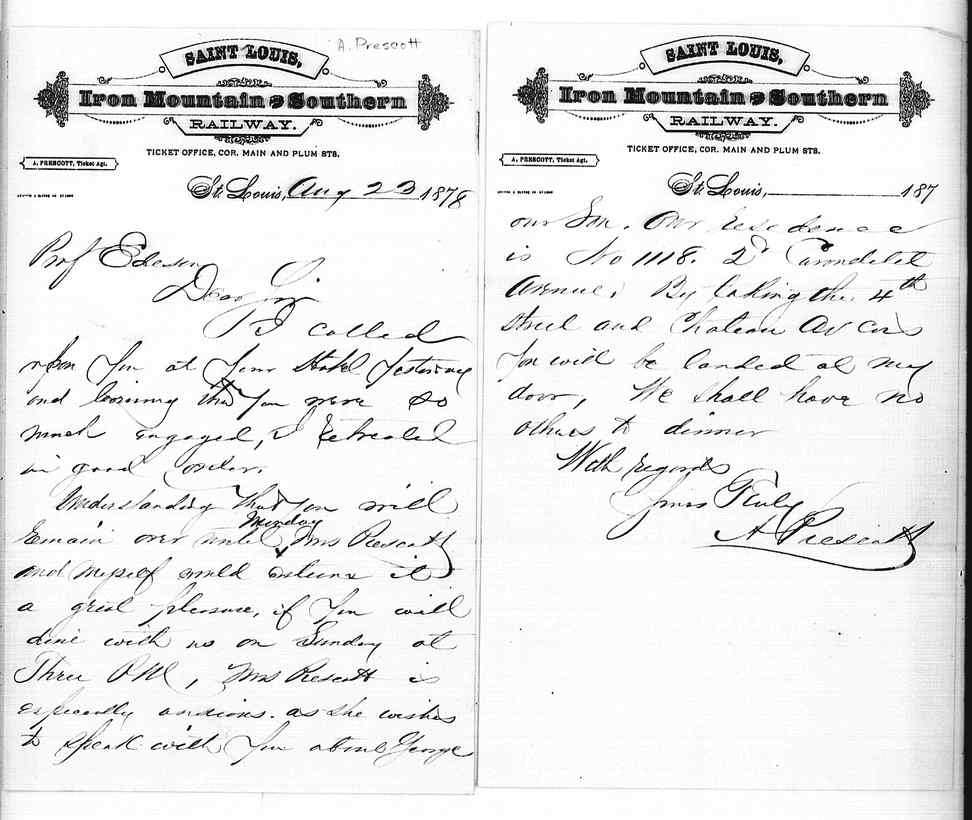 A. Prescott
SAINT LOUIS,
Iron Mountain & Southern
RAILWAY.
TICKET OFFICE, COR. MAIN AND PLUM STS.
A. PRESCOTT, Ticket Agt.
St. Louis, Aug 23 1878
Prof Edeson
Dear Sir
I called
upon you at your Hotel yesterday
and learning that you were so
much engaged, I retreated
in good order.
Understanding that you will
Monday
remain over until Mrs Prescott
and myself would esteem it
a great pleasure, if you will
dine with us on Sunday at
Three PM, Mrs Prescott is
especially anxious. as she wishes
to speak with you about George
SAINT LOUIS,
Iron Mountain & Southern
RAILWAY.
TICKET OFFICE, COR. MAIN AND PLUM STS.
A. PRESCOTT, Ticket Agt.
St. Louis, 187
our Son. Our residence
is No 1118. 2d Carondelet
Avenue. By taking the 4th
Street and Choteau Av Cars
you will be landed at my
door, We shall have no
others to dinner
With regards
Yours Truly
A Prescott